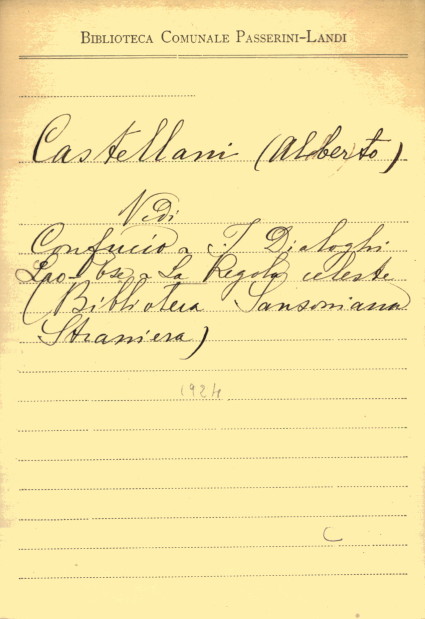 BIBLIOTECA COMUNALE PASSERINI-LANDI
Castellani (Alberto)
Vedi
Confucio = I Dialoghi
Lao-tse = La Regola celeste
(Biblioteca Sansoniana
Straniera)
1924
C